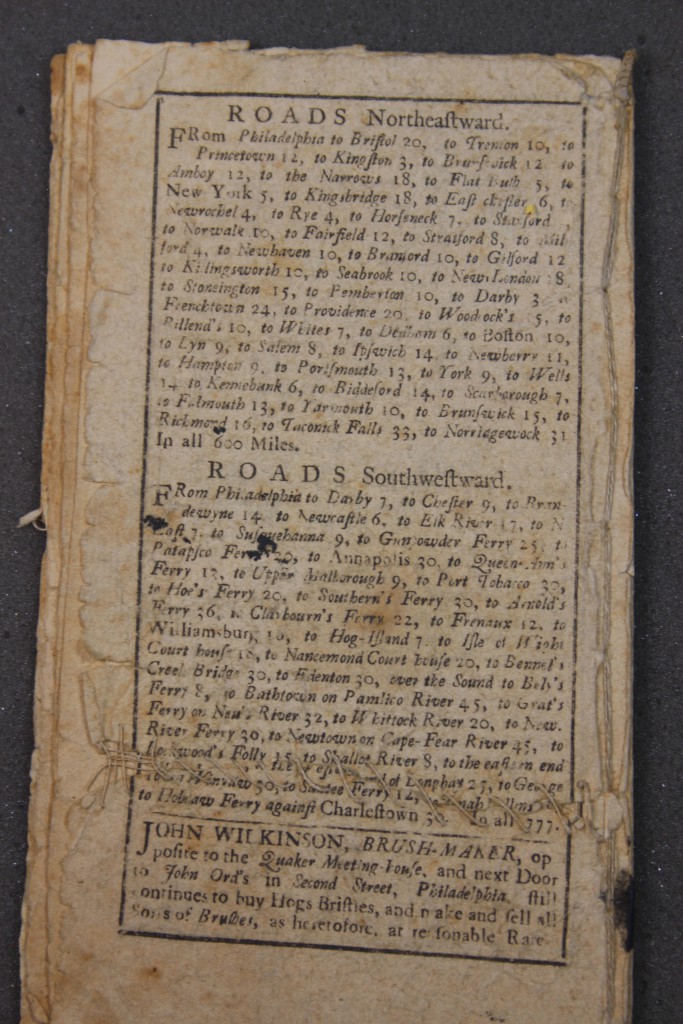 ROADS Northeaſtward.
FRom Philadelphia to Briſtol 20, to Trenton 10, to
Princetown 12, to Kingſton 3, to Brunſwick 12 to
Amboy 12, to the Narrows 18, to Flat Buſh 5, to
New York 5, to Kingsbridge 18, to Eaſt cheſter 6, t
Newrochel 4, to Rye 4, to Horſeneck 7, to Stanford
to Norwalk 10, to Fairfield 12, to Stratford 8, to Mil
ford 4, to Newhaven 10, to Branford 10, to Gilford 12
to Killingsworth 10, to Seabrook 10, to New London 18
to Stonington 15, to Pemberton 10, to Darby 3
Frenchtown 24, to Providence 20, to Woodcock's 15, to
Billend's 10, to Whites 7, to Dedham 6, to Boſton 10,
to Lyn 9, to Salem 8, to Ipſwich 14, to Newberry 11,
to Hampton 9, to Portſmouth 13, to York 9, to Wells
14 to Kennebunk 6, to Biddeford 14, to Scarborough 7,
to Falmouth 13, to Yarmouth 10, to Brunſwick 15, to
Richmond 16, to Taconick Falls 33, to Norridgewock 31
In all 600 Miles.
ROADS Southweſtward.
FRom Philadelphia to Darby 7, to Cheſter 9, to Bran-
dewyne 14, to Newcaſtle 6, to Elk River 17, to N
Eaſt 7, to Suſquehanna 9, to Gunpowder Ferry 25, t
Patapſco Ferry 20, to Annapolis 30, to Queen-Ann's
Ferry 13, to Upper Malborough 9, to Port Tobacco 30,
to Hoe's Ferry 20, to Southern's Ferry 30, to Arnold's
Ferry 36, to Claybourn's Ferry 22, to Freneaux 12, to
Williamsburg 16, to Hog-Iſland 7, to Iſle of Wight
Court houſe 18, to Nancemond Court houſe 20, to Bennet's
Creek Bridge 30, to Edenton 30, over the Sound to Bell's
Ferry 8, to Bathtown on Pamlico River 45, to Grat's
Ferry on Neu's River 32, to Whittock River 20, to New.
River Ferry 30, to Newtown on Cape-Fear River 45, to
Lockwood's Folly 15, to Shallot River 8, to the eaſtern end
of Long bay 25, to George
30, to Santee Ferry 12,
to Hobcaw Ferry againſt Charleſtown 30. In all 777.
JOHN WILKINSON, BRUSH-MAKER, op
poſite to the Quaker Meeting-houſe, and next Door
to John Ord's in Second Street, Philadelphia, ſtill
continues to buy Hogs Briſtles, and make and ſell all
Sorts of Bruſhes, as heretofore, at reaſonable Rate